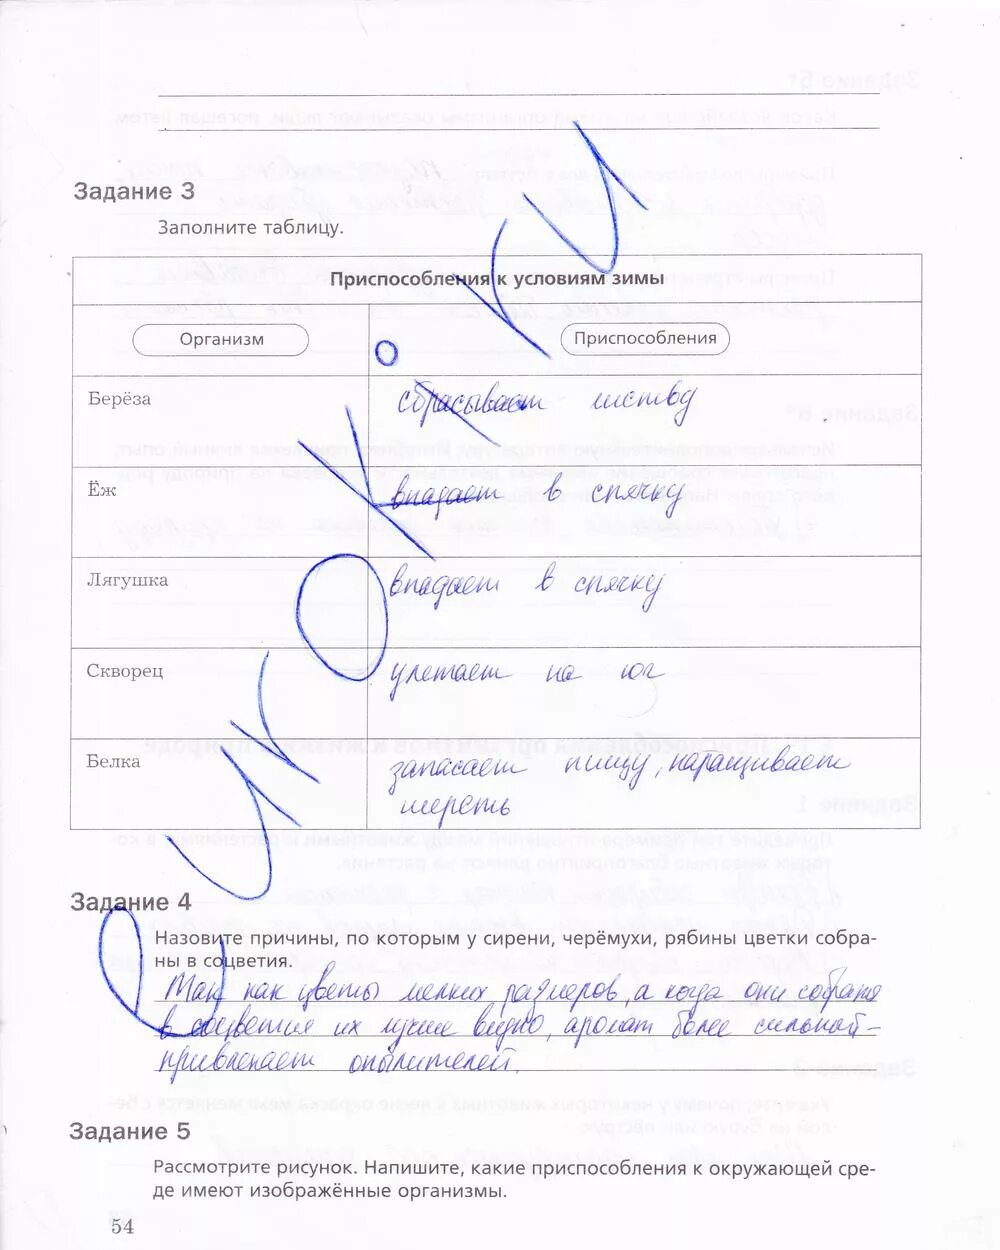 Задание 3
Заполните таблицу.
Приспособления к условиям зимы
Организм
Приспособления
Берёза
сбрасывает листву
Ёж
впадает в спячку
Лягушка
впадает в спячку
Скворец
улетает на юг
Белка
запасает пищу, наращивает
шерсть
Задание 4
Назовите причины, по которым у сирени, черёмухи, рябины цветки собра-
ны в соцветия.
Так как цветы мелких размеров, а когда они собраны
в соцветия их лучше видно, аромат более сильный -
привлекает опылителей.
Задание 5
Рассмотрите рисунок. Напишите, какие приспособления к окружающей сре-
де имеют изображённые организмы.
54